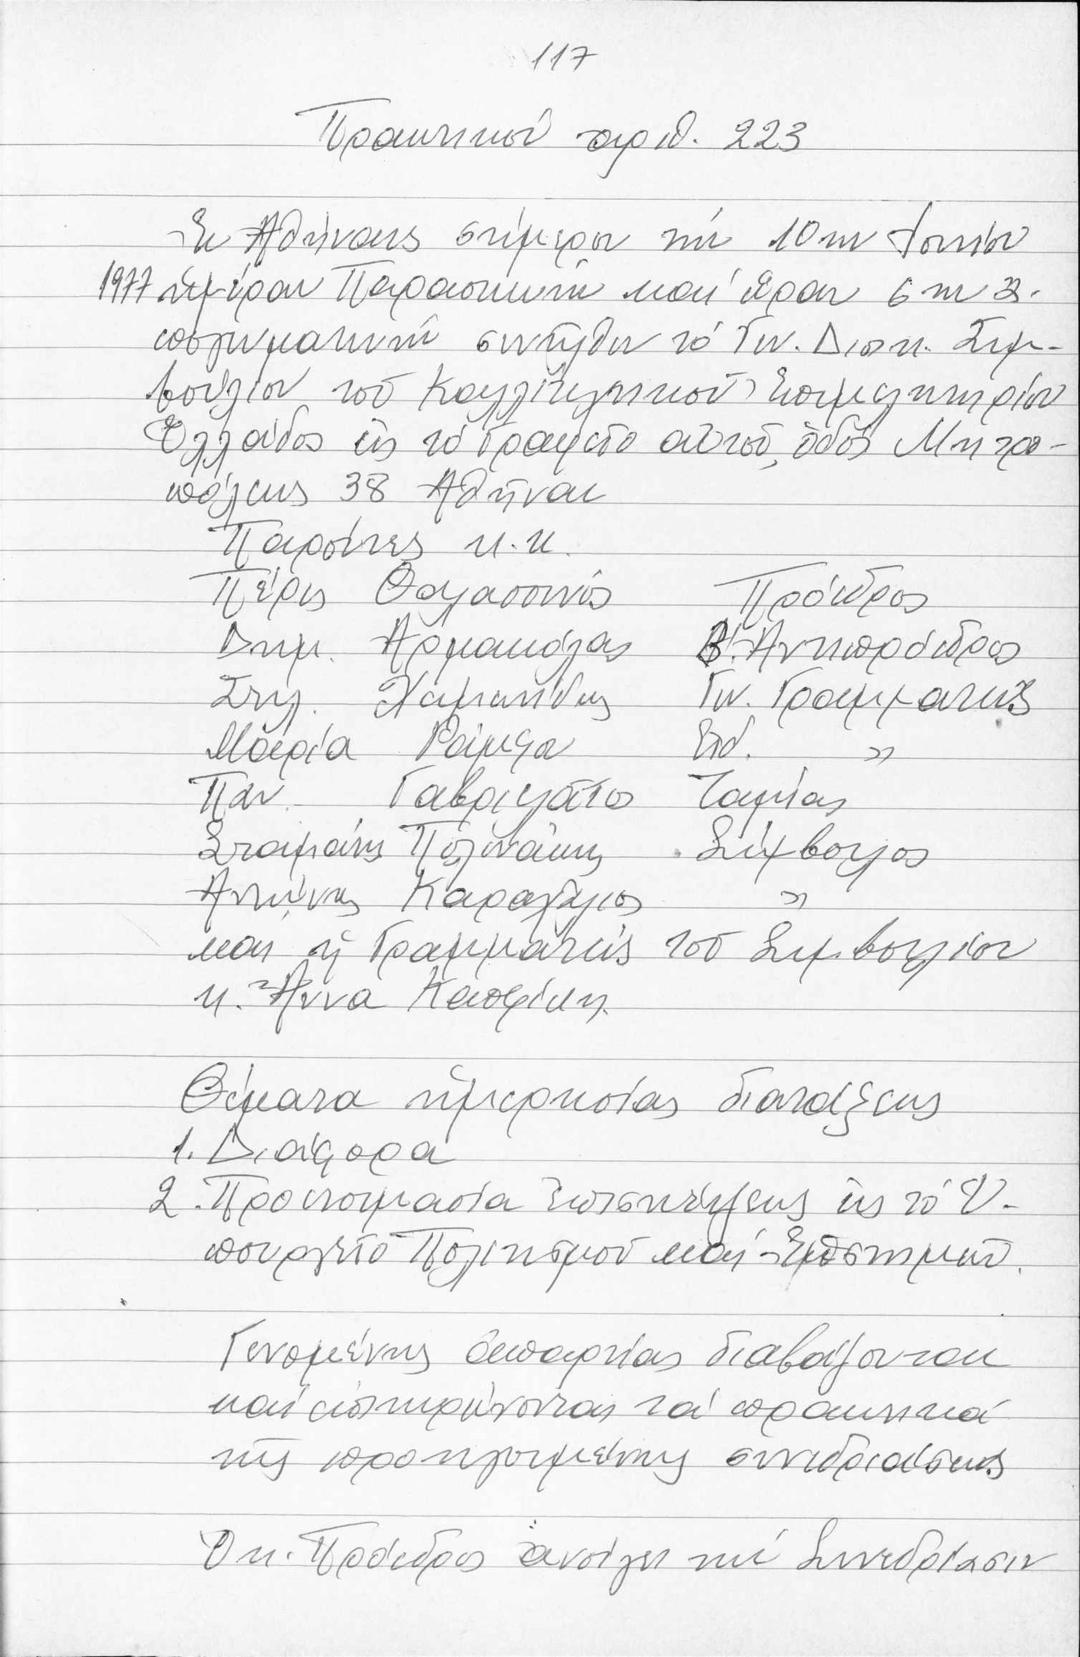 117
Πρακτικόν αριθ. 223
Ἐν Ἀθήναις σήμερον τήν 10ην Ἰουνίου
1977 ἡμέραν Παρασκευήν καί ὥραν 6ην μ.
ἀπογευματινήν συνῆλθεν τό Γεν. Διοικ. Συμ-
βούλιον τοῦ Καλλιτεχνικοῦ Ἐπιμελητηρίου
Ἑλλάδος εἰς τά Γραφεῖα αὐτοῦ, ὁδός Μητρο-
πόλεως 38 Ἀθῆναι
Παρόντες κ.κ.
Πέρις Θαλασσινός Πρόεδρος
Δημ. Ἀρμακόλας Β'. Ἀντιπρόεδρος
Στυλ. Γεν. Γραμματεύς
Μαρία Ράμφου Εἰδ. »
Παν. Γαβριελᾶτος Ταμίας
Σταμάτης Πολενάκης Σύμβουλος
Ἀντώνης Καραχάλιος »
καί ἡ Γραμματεύς τοῦ Συμβουλίου
κ. Ἄννα
Θέματα ἡμερησίας διατάξεως
1. Διάφορα
2. Προετοιμασία ἐπισκέψεως εἰς τό Ὑ-
πουργεῖο Πολιτισμοῦ καί Ἐπιστημῶν.
Γενομένης ἀπαρτίας διαβάζονται
καί ἐπικυρώνονται τά πρακτικά
τῆς προηγουμένης συνεδριάσεως
Ὁ κ. Πρόεδρος ἀνοίγει τήν Συνεδρίασιν